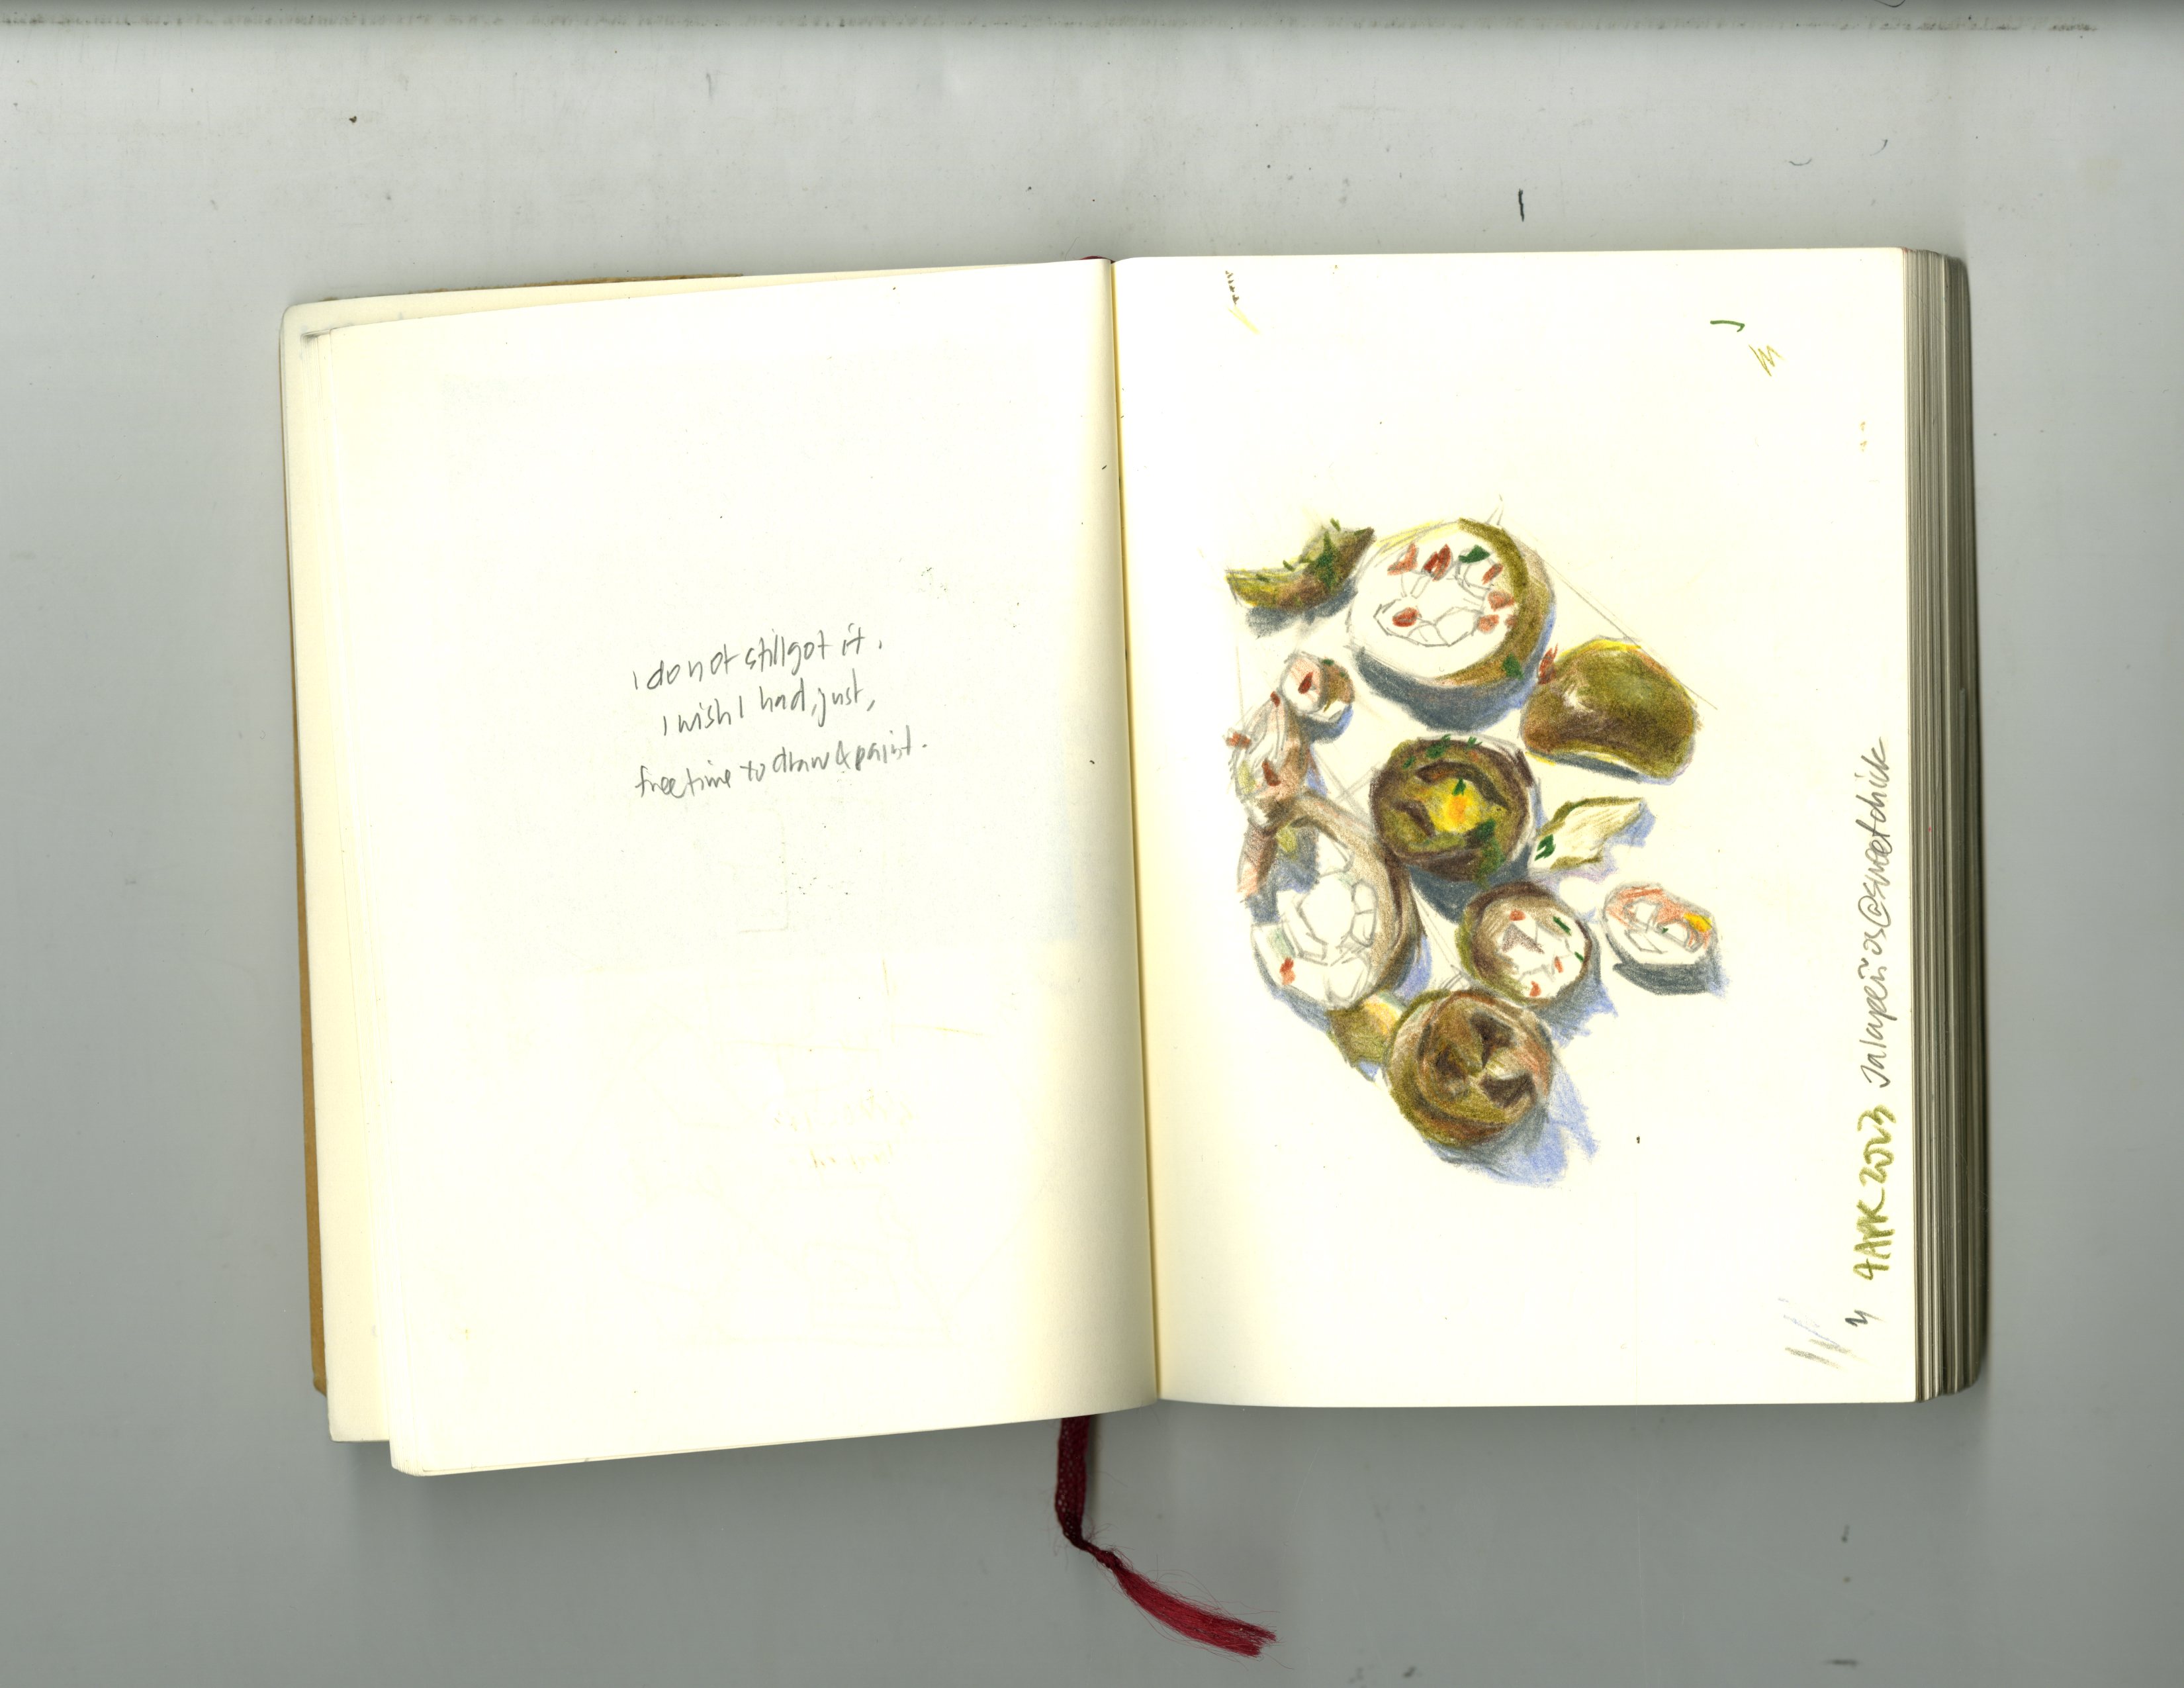 i do not still got it.
i wish i had, just,
free time to draw & paint.
4 APR 2023 Jalapeños @ sweetchick